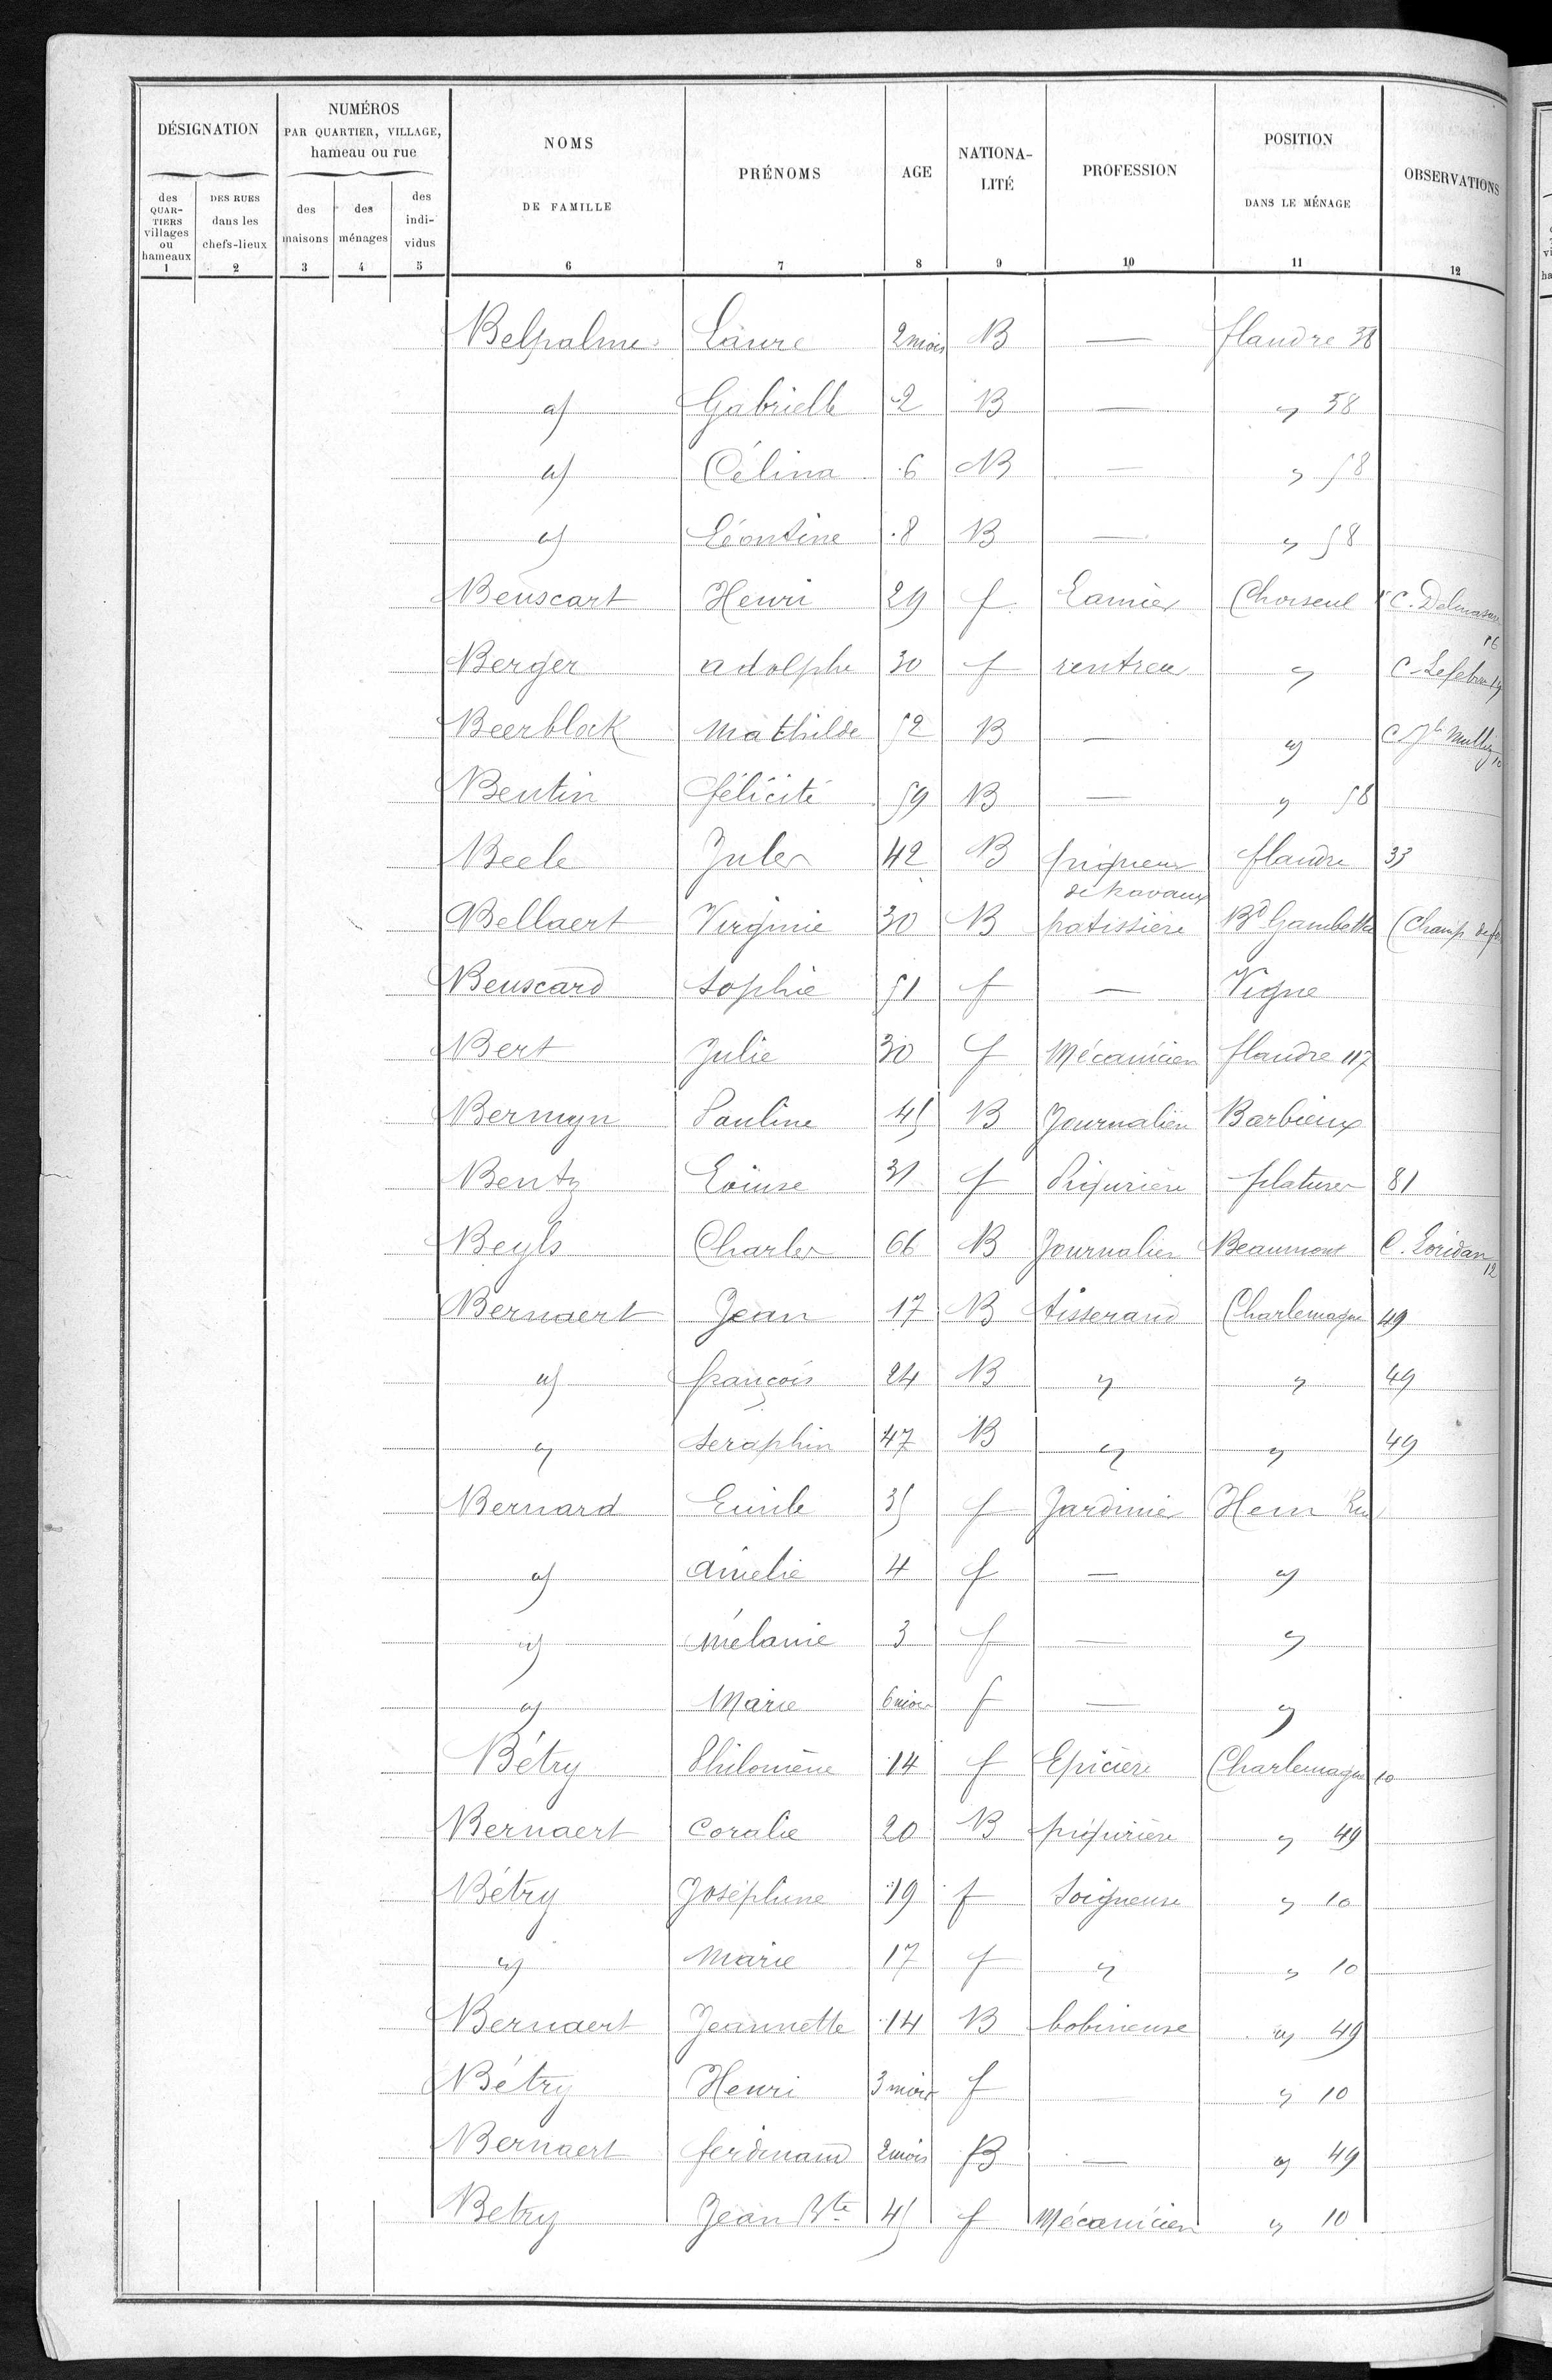 DÉSIGNATION | NUMÉROS PAR QUARTIER, VILLAGE, hameau ou rue | NOMS DE FAMILLE | PRÉNOMS | AGE | NATIONALITÉ | PROFESSION | POSITION DANS LE MÉNAGE | OBSERVATIONS
des QUARTIERS villages ou hameaux | DES RUES dans les chefs-lieux | des maisons | des ménages | des individus
1 | 2 | 3 | 4 | 5 | 6 | 7 | 8 | 9 | 10 | 11 | 12
Belpalme | Laure | 2 mois | B | — | flandre 58
" | Gabrielle | 2 | B | — | " 58
" | Célina | 6 | B | — | " 58
" | Léontine | 8 | B | — | " 58
Beuscart | Henri | 29 | f | Lamier | Choiseul | C. Delmasure 16
Berger | adolphe | 30 | f | rentreur | " | C. Lefebvre 19
Beerblock | Mathilde | 52 | B | — | " | C. Mulliez 10
Bentin | félicité | 59 | B | — | " 58
Beele | Jules | 42 | B | piqueur de travaux | flandre | 33
Bellaert | Virginie | 30 | B | patissière | Bd Gambetta | (Champ de
Beuscard | Sophie | 51 | f | — | Vigne
Bert | Julie | 30 | f | Mécanicien | flandre 117
Bermyn | Pauline | 45 | B | Journalièr | Barbieux
Bentz | Louise | 31 | f | Piqurière | filatures | 81
Beyls | Charles | 66 | B | Journalier | Beaumont | C. Loridan 12
Bernaert | Jean | 17 | B | tisserand | Charlemagne | 49
" | françois | 24 | B | " | " | 49
" | Seraphin | 47 | B | " | " | 49
Bernard | Emile | 35 | f | Jardinier | Hem
" | amelie | 4 | f | — | "
" | mélanie | 3 | f | — | "
" | Marie | 6 mois | f | — | "
Bétry | Philomène | 14 | f | Epicière | Charlemagne | 10
Bernaert | Coralie | 20 | B | piqurière | " 49
Bétry | Joséphine | 19 | f | Soigneuse | " 10
" | Marie | 17 | f | " | " 10
Bernaert | Jeannette | 14 | B | bobineuse | " 49
Bétry | Henri | 3 mois | f | | " 10
Bernaert | ferdinand | 2 mois | B | — | " 49
Betry | Jean Bte | 45 | f | Mécanicien | " 10